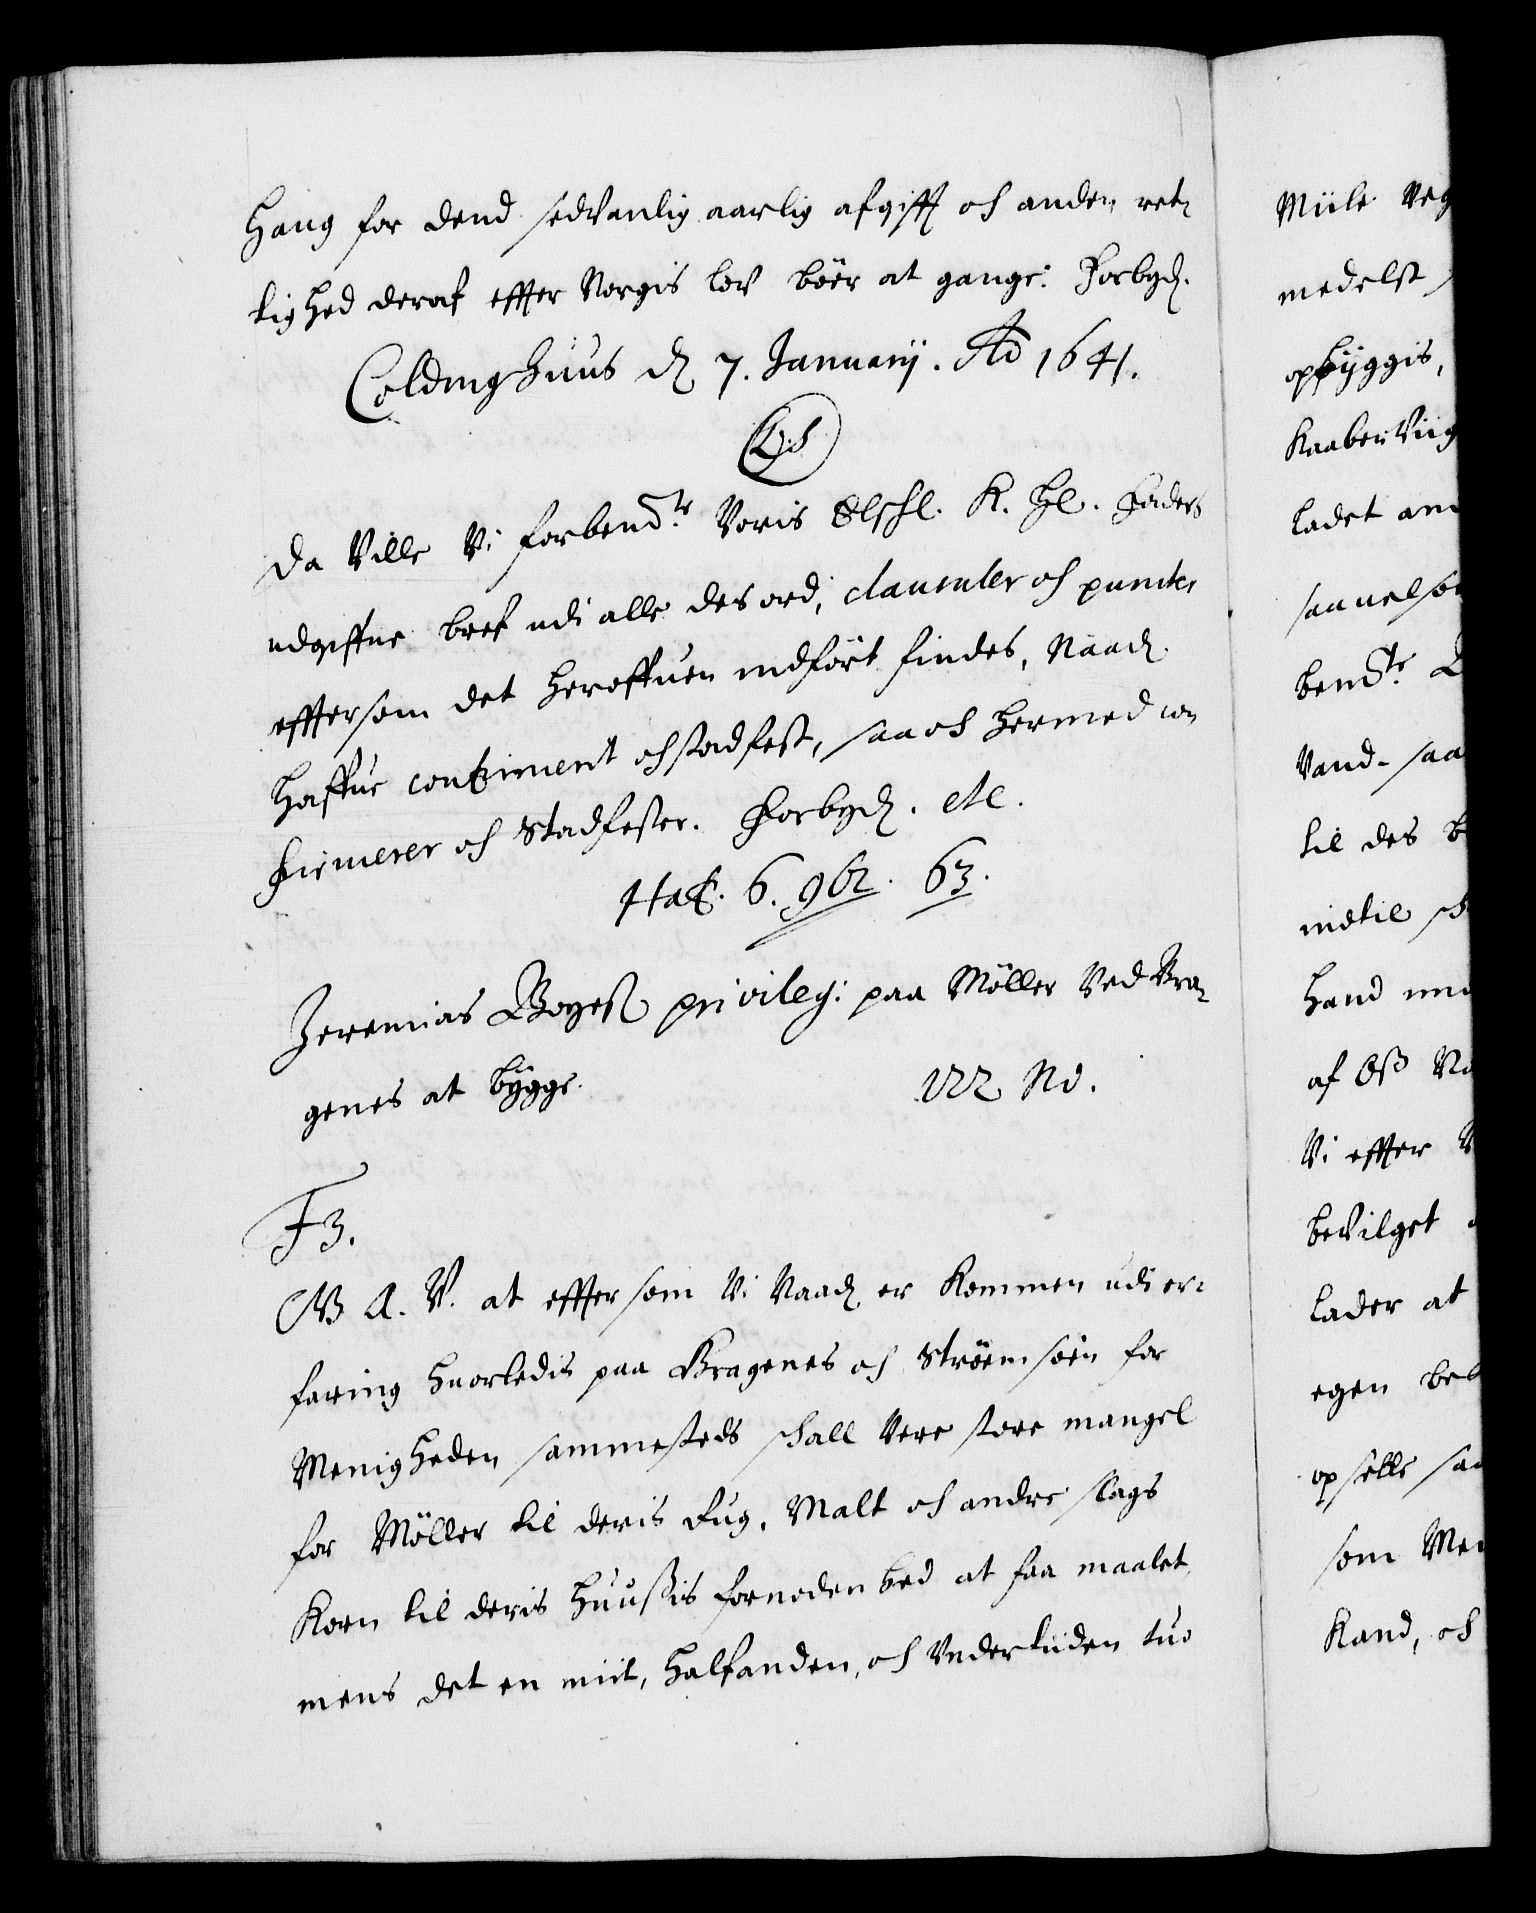 hang for dend sedvanlig aarlig afgifft och anden ret-
tighed deraf effter Norgis lov bör at gange: Forbyd.
Coldinghuus d. 7. Januarij. Ao 1641.
L.S.
Da Ville Vi forbemte Voris Elschl. K. Hl. Faders
udgiffne bref udi alle des ord, clausuler och puncter
efftersom det heroffuen indfört findes, Naad.
haffue confirmerit och stadfest, saa och hermed con
firmerer och Stadfester. Forbyd. etc.
Haf. 6. 9br. 63.
Jeremias Boyes privileg: paa Möller Ved Bra-
genes at bÿgge.
F3.
G A. V. at efftersom Vi Naad er kommen udi er-
faring huorledis paa Bragenes och Strömsöen for
Menigheden sammesteds schall Vere store mangel
for Möller til deris Rug, Malt och andre slags
Korn til deris huusis fornodenhed at faa maalet,
mens det en miil, halfanden, och Undertiiden tuo
Miile Veg
medelst
opbÿggis,
Kaaber
ladet
saauelsom
bemte
Vand- saa
til des
indtil
hand
af Oss
Vi effter
beVilget
lader at
egen
opsette
som
Kand, och